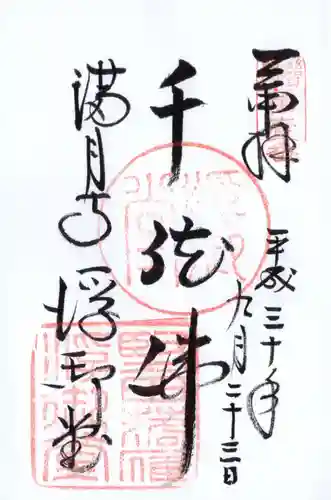 奉拝
平成三十年
九月二十三日
千体佛
満月寺 浮御堂